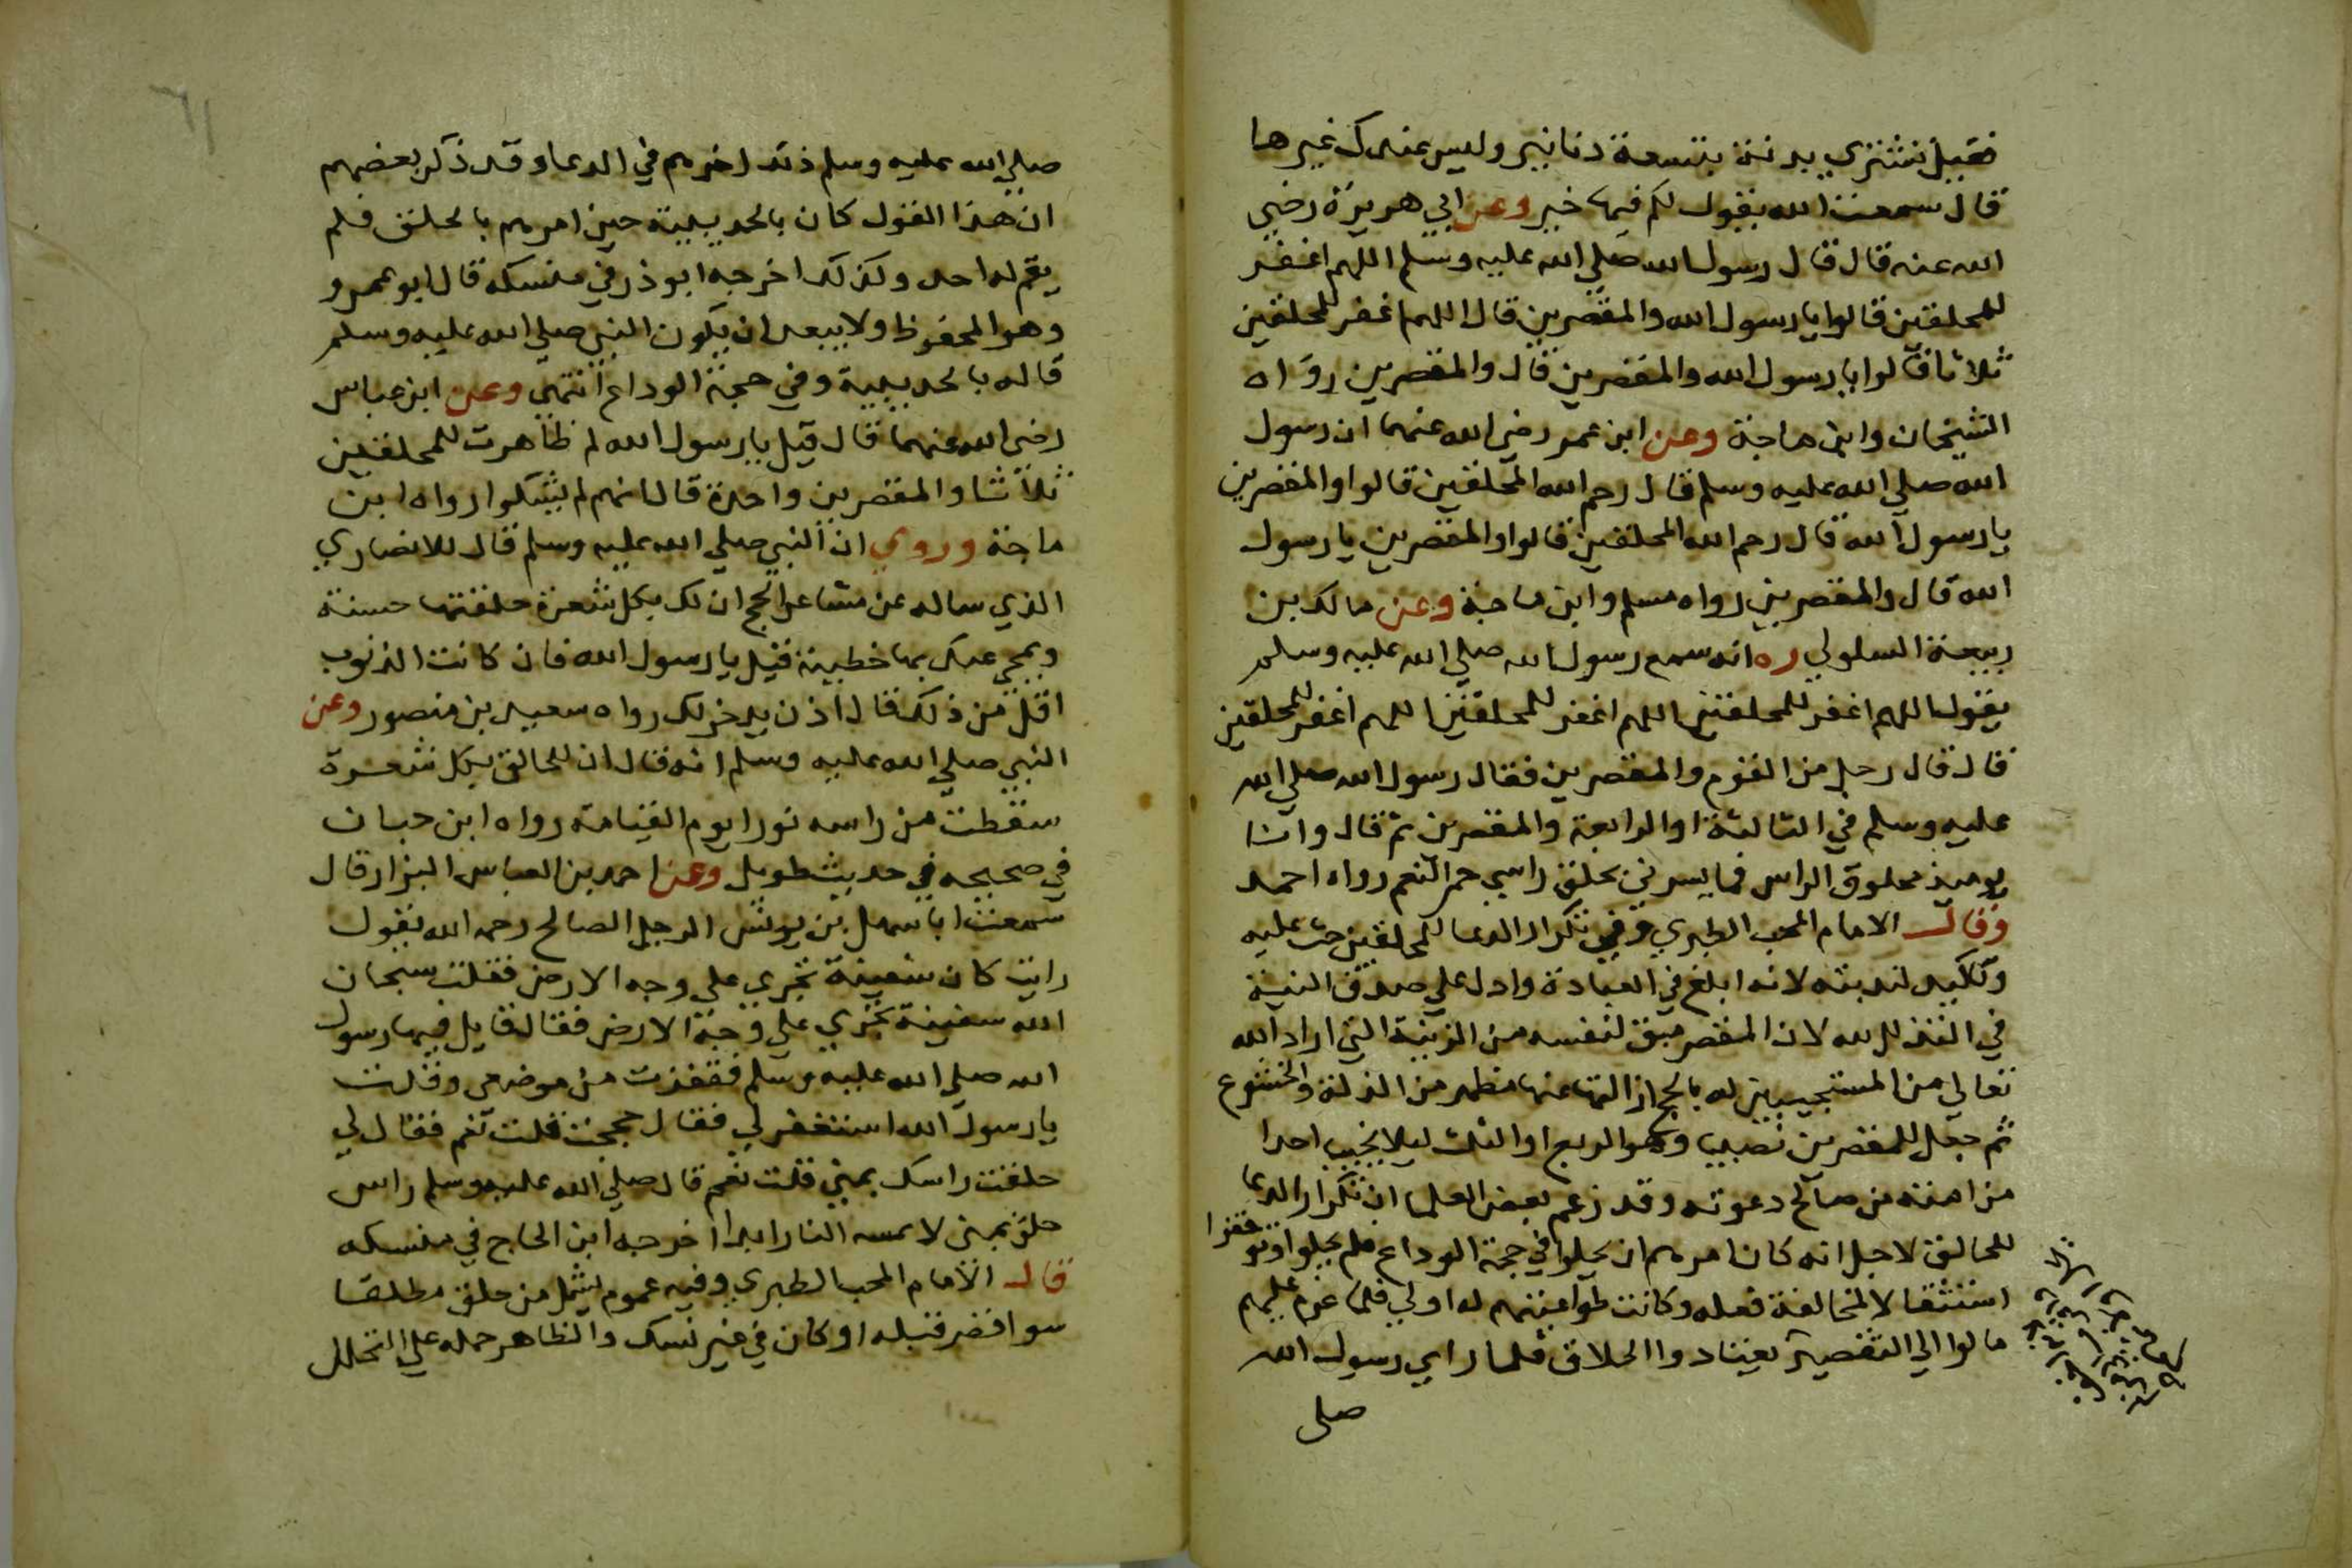 فقيل تشتري بدنة بتسعة دنانير وليس عندك غيرها
قال سمعت الله يقول لكم فيها خير وعن ابي هريرة رضي
الله عنه قال قال رسول الله صلي الله عليه وسلم اللهم اغفر
للمحلقين قالوا يا رسول الله والمقصرين قال اللهم اغفر للمحلقين
ثلاثا قالوا يا رسول الله والمقصرين قال والمقصرين رواه
الشيخان وابن ماجة وعن ابن عمر رضي الله عنهما ان رسول
الله صلي الله عليه وسلم قال رحم الله المحلقين قالوا والمقصرين
يا رسول الله قال رحم الله المحلقين قالوا والمقصرين يا رسول
الله قال والمقصرين رواه مسلم وابن ماجة وعن مالك بن
ربيعة السلولي ره انه سمع رسول الله صلي الله عليه وسلم
يقول اللهم اغفر للمحلقين اللهم اغفر للمحلقين اللهم اغفر للمحلقين
قال قال رجل من القوم والمقصرين فقال رسول الله صلي الله
عليه وسلم في الثالثة او الرابعة والمقصرين ثم قال وانا
يوميذ محلوق الراس فما يسرني بحلق راسي حمر النعم رواه احمد
وقال الامام المحب الطبري وفي تكرار الدعا للمحلقين حث عليه
وتاكيد لندبته لانه ابلغ في العبادة وادل علي صدق النية
في التذلل لله لان المقصر مبق لنفسه من الزينة التي اراد الله
تعالي من المستجيبين له بالحج ازالتها عنها مظهر من الذلة والخشوع
ثم جعل للمقصرين نصيبا وهو الربع او الثلث ليلا يخيب احدا
من امته من صالح دعوته وقد زعم بعض العلما ان تكرار الدعا
للحالق لاجل انه كان امرهم ان يحلوا في حجة الوداع فلم يحلوا وتوقفوا
استثقالا لمخالفة فعله وكانت طواعيتهم له اولي فلما عزم عليهم
مالوا الي التقصير يعتادوا الحلاق فلما راي رسول الله
صلى
٦١
صلي الله عليه وسلم ذلك اخرهم في الدعا وقد ذكر بعضهم
ان هذا القول كان بالحديبية حين امرهم بالحلق فلم
يقم له احد وكذلك اخرجه ابو ذر في منسكه قال ابو عمرو
وهو المحفوظ ولا يبعد ان يكون النبي صلي الله عليه وسلم
قاله بالحديبية وفي حجة الوداع انتهي وعن ابن عباس
رضي الله عنهما قال قيل يا رسول الله لم ظاهرت للمحلقين
ثلاثا والمقصرين واحدة قال انهم لم يشكوا رواه ابن
ماجة وروي ان النبي صلي الله عليه وسلم قال للانصاري
الذي ساله عن مشاعر الحج ان لك بكل شعرة حلقتها حسنة
ويمحي عنك بها خطيئة قيل يا رسول الله فان كانت الذنوب
اقل من ذلك قال اذن يدخر لك رواه سعيد بن منصور وعن
النبي صلي الله عليه وسلم انه قال ان للحالق بكل شعرة
سقطت من راسه نورا يوم القيامة رواه ابن حبان
في صحيحه في حديث طويل وعن احمد بن العباس البزار قال
سمعت ابا سهل بن يونس الرجل الصالح رحمه الله يقول
رايت كان سفينة تجري علي وجه الارض فقلت سبحان
الله سفينة تجري علي وجه الارض فقال قايل فيها رسول
الله صلي الله عليه وسلم فقفزت من موضعي وقلت
يا رسول الله استغفر لي فقال حججت قلت نعم فقال لي
حلقت راسك بمني قلت نعم قال صلي الله عليه وسلم راس
حلق بمنى لا تمسه النار ابدا اخرجه ابن الحاج في منسكه
قال الامام المحب الطبري وفيه عموم يشمل من حلق مطلقا
سوا قصر قبله او كان في غير نسك والظاهر حمله علي التحلل